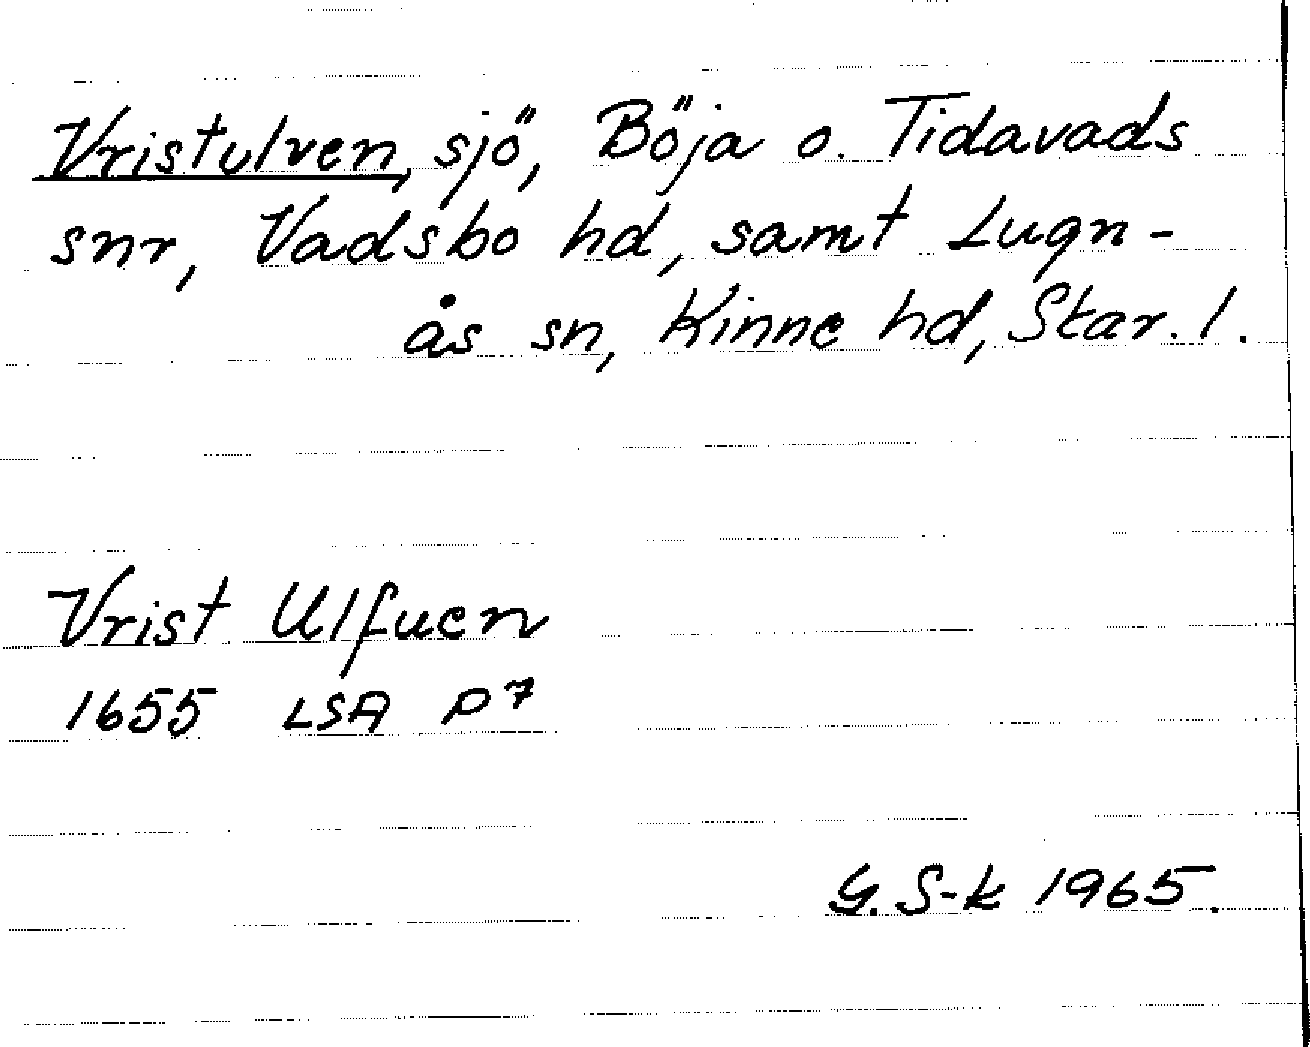 Vristulven, sjö, Böja o. Tidavads
snr, Vadsbo hd, samt Lugn-
ås sn, Kinne hd, Skar. l.
Vrist Ulfuen
1655 LSA P7
G. S-k 1965.